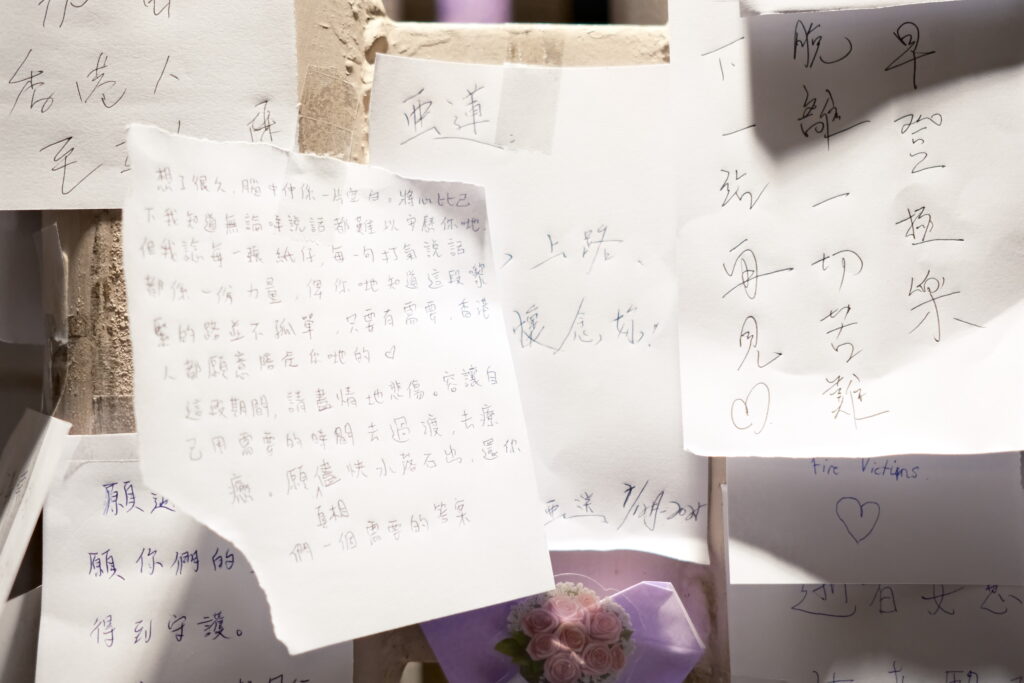 香港人
至
亞蓮
上路、
懷念妳!
早登極樂
脫離一切苦難
下一站再見♡
想了很久,腦中仲係一片空白。將心比己
下我知道無論咩說話都難以安慰你哋,
但我諗每一張紙仔,每一句打氣說話
都係一份力量,得你哋知道這段
的路並不孤單,只要有需要,香港
人都願意陪在你哋的♡
這段期間,請盡情地悲傷。容讓自
己用需要的時間去過渡,去療
癒。願真相儘快水落石出,還你
們一個需要的答案
願
願你們的
得到守護。
Fire Victims